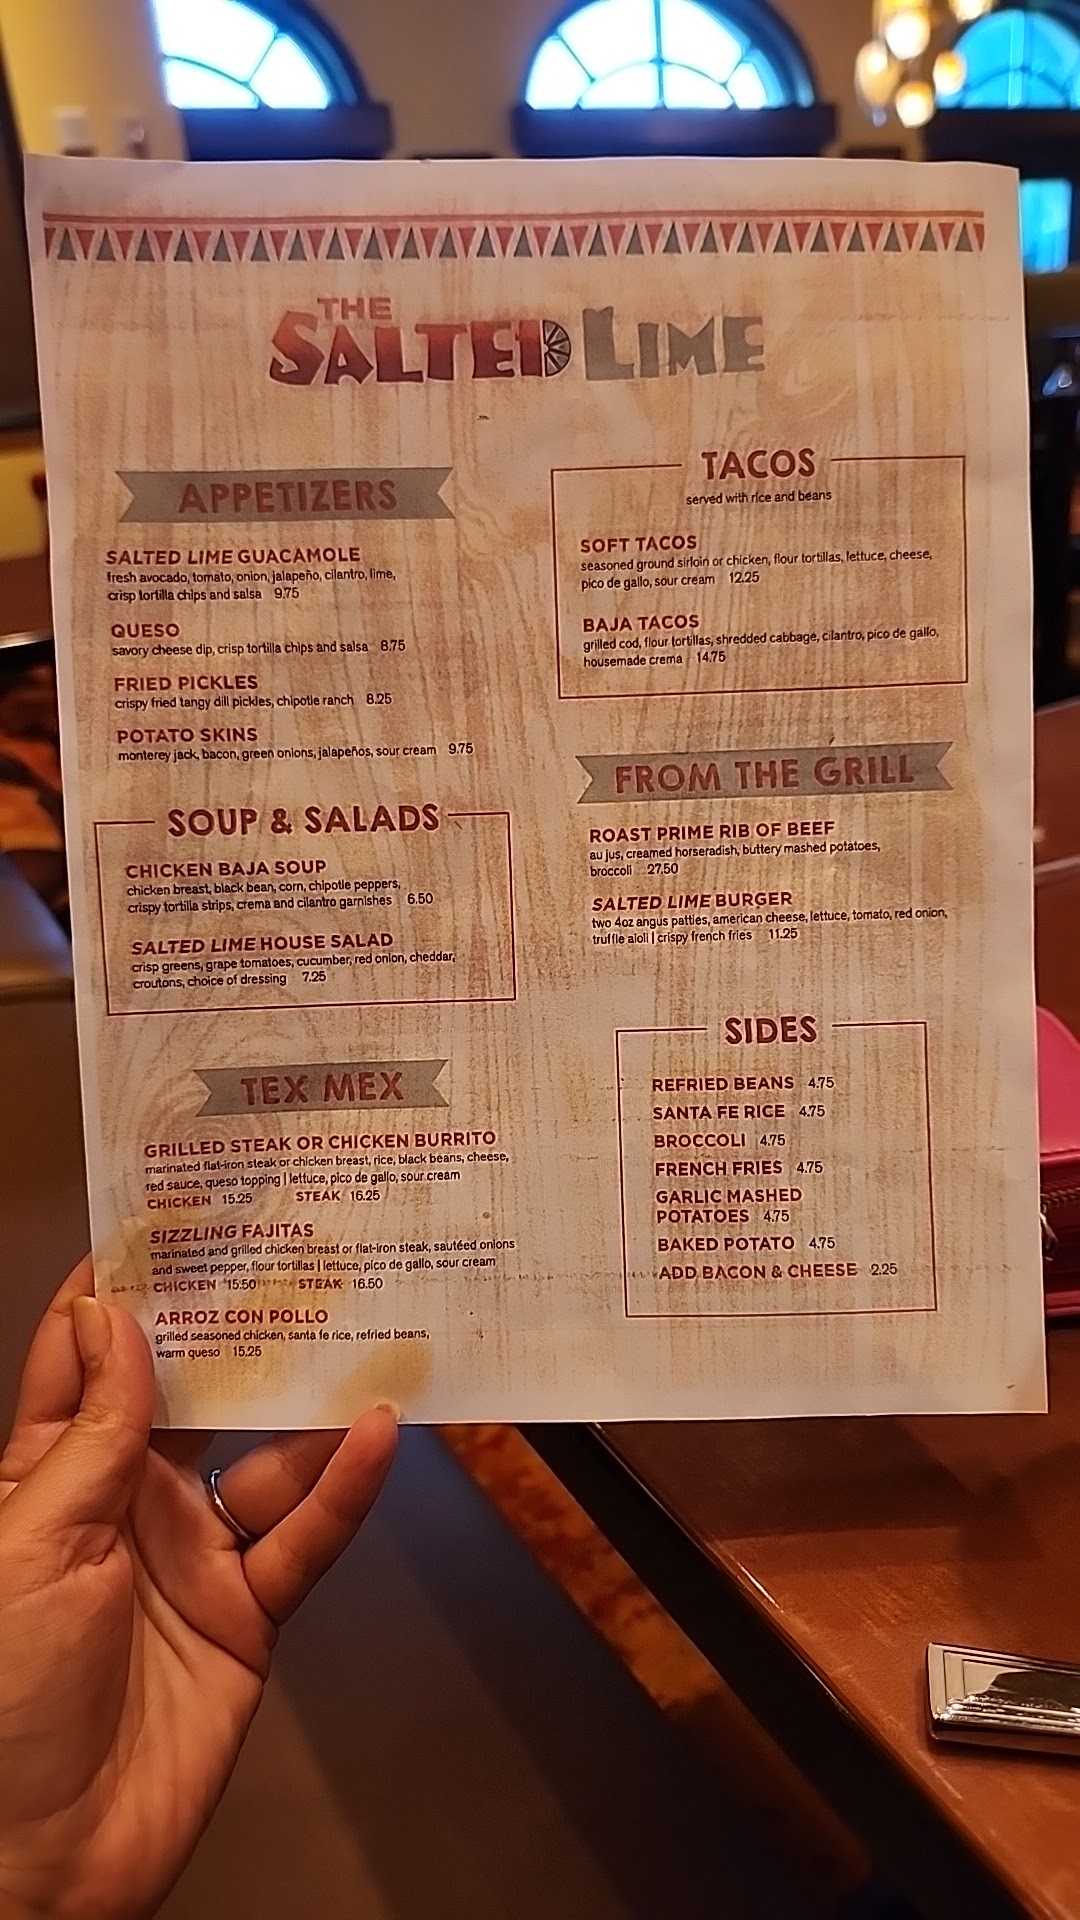 THE
SALTED LIME
APPETIZERS
SALTED LIME GUACAMOLE
fresh avocado, tomato, onion, jalapeño, cilantro, lime,
crisp tortilla chips and salsa 9.75
QUESO
savory cheese dip, crisp tortilla chips and salsa 8.75
FRIED PICKLES
crispy fried tangy dill pickles, chipotle ranch 8.25
POTATO SKINS
monterey jack, bacon, green onions, jalapeños, sour cream 9.75
SOUP & SALADS
CHICKEN BAJA SOUP
chicken breast, black bean, corn, chipotle peppers,
crispy tortilla strips, crema and cilantro garnishes 6.50
SALTED LIME HOUSE SALAD
crisp greens, grape tomatoes, cucumber, red onion, cheddar,
croutons, choice of dressing 7.25
TEX MEX
GRILLED STEAK OR CHICKEN BURRITO
marinated flat-iron steak or chicken breast, rice, black beans, cheese,
red sauce, queso topping | lettuce, pico de gallo, sour cream
CHICKEN 15.25 STEAK 16.25
SIZZLING FAJITAS
marinated and grilled chicken breast or flat-iron steak, sautéed onions
and sweet pepper, flour tortillas | lettuce, pico de gallo, sour cream
CHICKEN 15.50 STEAK 16.50
ARROZ CON POLLO
grilled seasoned chicken, santa fe rice, refried beans,
warm queso 15.25
TACOS
served with rice and beans
SOFT TACOS
seasoned ground sirloin or chicken, flour tortillas, lettuce, cheese,
pico de gallo, sour cream 12.25
BAJA TACOS
grilled cod, flour tortillas, shredded cabbage, cilantro, pico de gallo,
housemade crema 14.75
FROM THE GRILL
ROAST PRIME RIB OF BEEF
au jus, creamed horseradish, buttery mashed potatoes,
broccoli 27.50
SALTED LIME BURGER
two 4oz angus patties, american cheese, lettuce, tomato, red onion,
truffle aioli | crispy french fries 11.25
SIDES
REFRIED BEANS 4.75
SANTA FE RICE 4.75
BROCCOLI 4.75
FRENCH FRIES 4.75
GARLIC MASHED
POTATOES 4.75
BAKED POTATO 4.75
ADD BACON & CHEESE 2.25